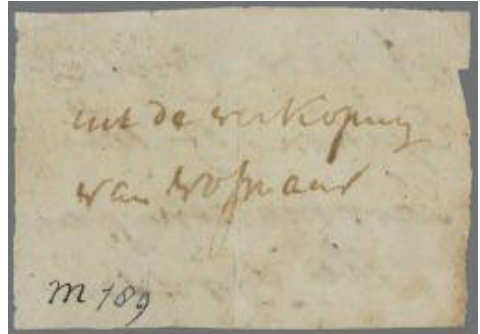 uit de verkoping
van Wosnaar
M 189